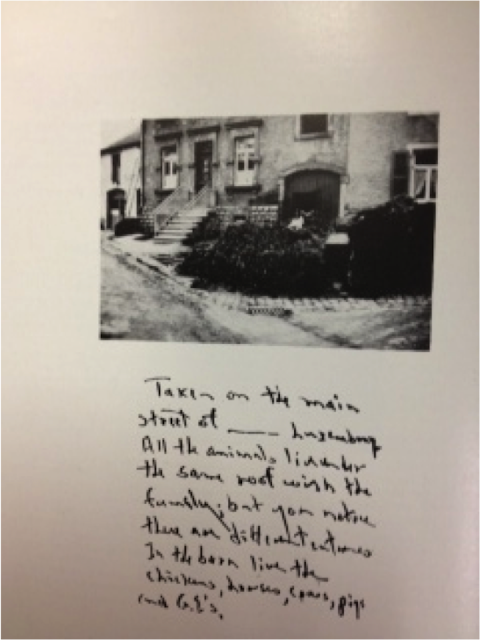 Taken on the main
street of ____ Luxemburg
All the animals live under
the same roof with the
family; but you notice
there are different entrances
In the barn live the
chickens, horses, cows, pigs
and G.I.'s.